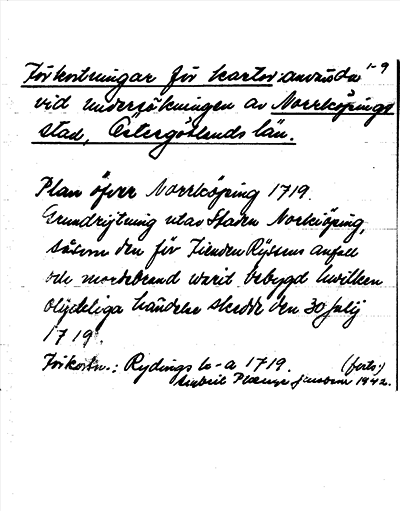 1-9
Förkortningar för kartor använda
vid undersökningen av Norrköpings
stad, Östergötlands län.
Plan öfver Norrköping 1719.
Grundrijtning utav Staden Norkiöping,
såsom den för Fienden Ryssens anfall
och mordebrand warit bebygd hwilken
olyckeliga händelse skedde den 30 Julij
1719.
Förkortn.: Rydings k-a 1719. (forts.)
1942.